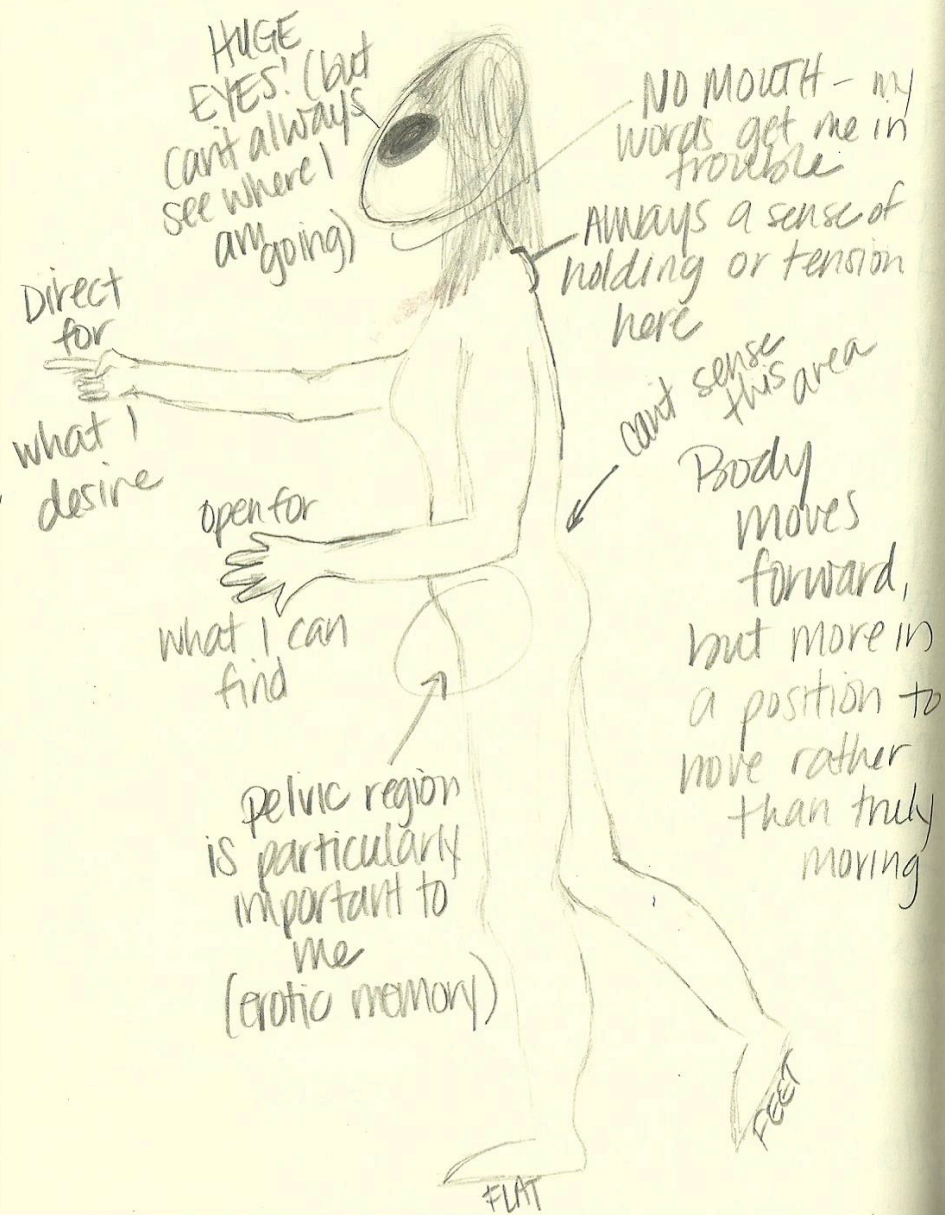 HUGE
EYES! (but
can't always
see where I
am
going)
NO MOUTH - my
words get me in
trouble
Always a sense of
holding or tension
here
can't sense
this area
Direct
for
what I
desire
open for
what I can
find
Body
moves
forward,
but more in
a position to
move rather
than truly
moving
pelvic region
is particularly
important to
me
(erotic memory)
FLAT
FEET